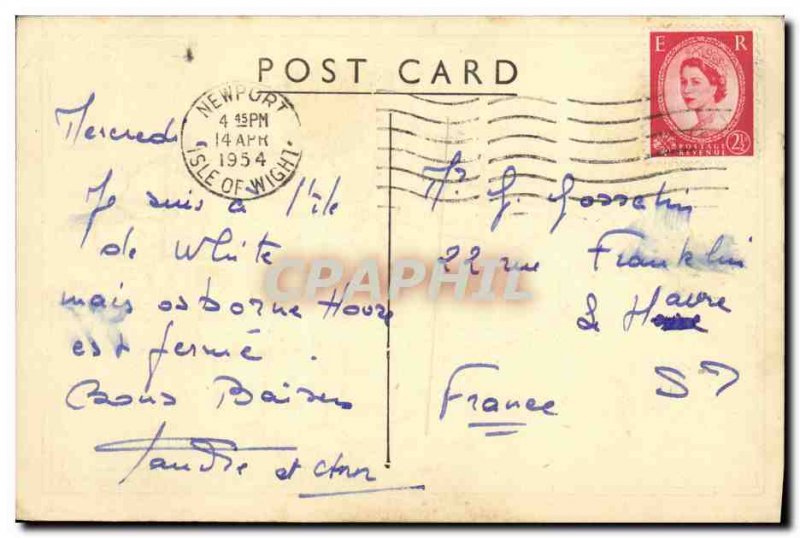 POST CARD
E R
POSTAGE 2½
REVENUE
NEWPORT
4 45PM
14 APR
1954
ISLE OF WIGHT
Mercredi
Je suis à l'île
de White
mais osborne House
est fermé.
Bons Baisers
et
Mr G. Gosselin
22 rue Franklin
Le Havre
S I
France
CPAPHIL